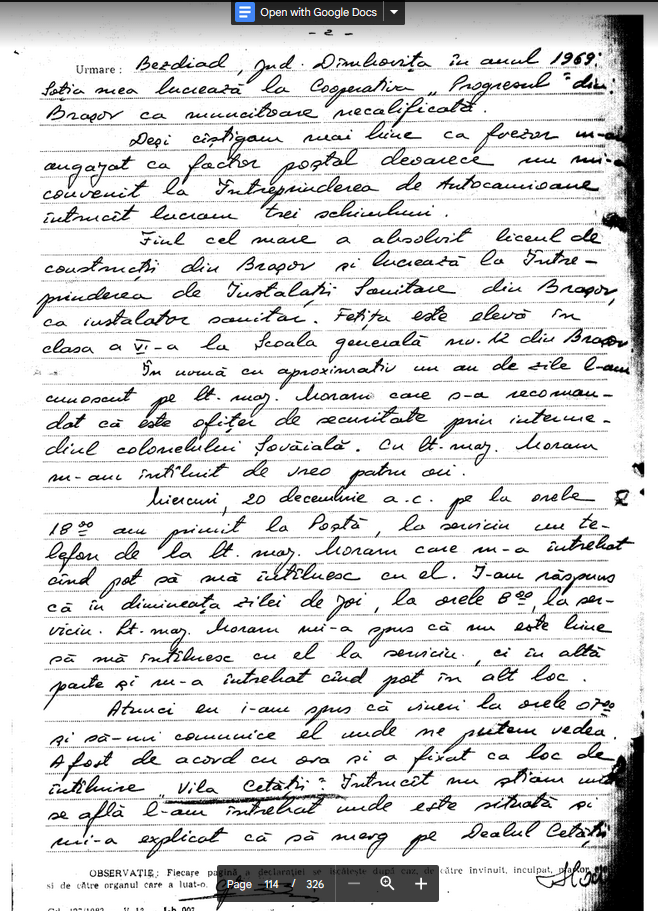 Open with Google Docs
- 2 -
Urmare: Bezdiad, jud. Dîmbovița în anul 1969.
Soția mea lucrează la Cooperativa "Progresul" din
Brașov ca muncitoare necalificată.
Deși cîștigam mai bine ca frezor m-am
angajat ca factor poștal deoarece nu mi-a
convenit la Întreprinderea de Autocamioane
întrucît lucram trei schimburi.
Fiul cel mare a absolvit liceul de
construcții din Brașov și lucrează la Între-
prinderea de Instalații Sanitare din Brașov,
ca instalator sanitar. Fetița este elevă în
clasa a VI-a la Școala generală nr. 12 din Brașov
În urmă cu aproximativ un an de zile l-am
cunoscut pe lt. maj. Moraru care s-a recoman-
dat că este ofițer de securitate prin interme-
diul colonelului Șovăială. Cu lt. maj. Moraru
m-am întîlnit de vreo patru ori.
Miercuri, 20 decembrie a.c. pe la orele
18 00 am primit la Poștă, la serviciu un te-
lefon de la lt. maj. Moraru care m-a întrebat
cînd pot să mă întîlnesc cu el. I-am răspuns
că în dimineața zilei de joi, la orele 8 00, la ser-
viciu. Lt. maj. Moraru mi-a spus că nu este bine
să mă întîlnesc cu el la serviciu, ci în altă
parte și m-a întrebat cînd pot în alt loc.
Atunci eu i-am spus că vineri la orele 07 00
și să-mi comunice el unde ne putem vedea.
A fost de acord cu ora și a fixat ca loc de
întîlnire "Vila Cetății". Întrucît nu știam unde
se află l-am întrebat unde este situată și
mi-a explicat că să merg pe Dealul Cetății
OBSERVAȚIE: Fiecare pagină a declarației se iscălește după caz, de către învinuit, inculpat, martor
și de către organul care a luat-o.
Page 114 / 326